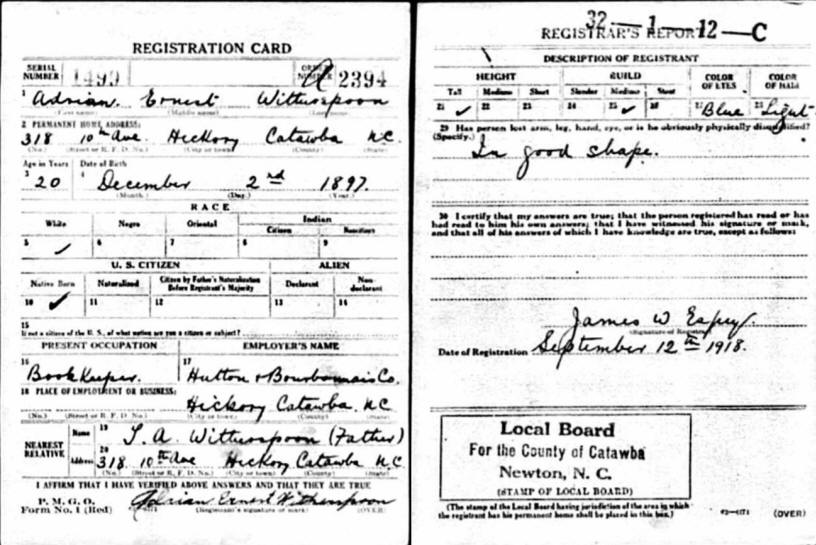 REGISTRATION CARD
SERIAL NUMBER 1499 ORDER NUMBER A 2394
1 Adrian Ernest Witherspoon
(First name) (Middle name) (Last name)
2 PERMANENT HOME ADDRESS:
318 10th Ave. Hickory Catawba N.C.
(No.) (Street or R. F. D. No.) (City or town) (County) (State)
Age in Years Date of Birth
3 20 4 December 2nd 1897.
(Month.) (Day.) (Year.)
RACE
White Negro Oriental Indian
Citizen Noncitizen
5 ✓ 6 7 8 9
U. S. CITIZEN ALIEN
Native Born Naturalized Citizen by Father's Naturalization Before Registrant's Majority Declarant Non-declarant
10 ✓ 11 12 13 14
15
If not a citizen of the U. S., of what nation are you a citizen or subject?
PRESENT OCCUPATION EMPLOYER'S NAME
16 Book Keeper. 17 Hutton & Bourbonnais Co.
18 PLACE OF EMPLOYMENT OR BUSINESS:
Hickory Catawba N.C
(No.) (Street or R. F. D. No.) (City or town) (County) (State)
NEAREST RELATIVE
Name 19 T. A. Witherspoon (Father)
Address 20 318 10th Ave Hickory Catawba N.C
(No.) (Street or R. F. D. No.) (City or town) (County) (State)
I AFFIRM THAT I HAVE VERIFIED ABOVE ANSWERS AND THAT THEY ARE TRUE
P. M. G. O.
Form No. 1 (Red) Adrian Ernest Witherspoon
(Registrant's signature or mark) (OVER)
32—1—12—C
REGISTRAR'S REPORT
DESCRIPTION OF REGISTRANT
HEIGHT BUILD COLOR OF EYES COLOR OF HAIR
Tall Medium Short Slender Medium Stout
21 ✓ 22 23 24 25 ✓ 26 27 Blue 28 Light
29 Has person lost arm, leg, hand, eye, or is he obviously physically disqualified?
(Specify.)
In good shape.
30 I certify that my answers are true; that the person registered has read or has
had read to him his own answers; that I have witnessed his signature or mark,
and that all of his answers of which I have knowledge are true, except as follows:
James W Espey.
(Signature of Registrar)
Date of Registration September 12th 1918.
Local Board
For the County of Catawba
Newton, N. C.
(STAMP OF LOCAL BOARD)
(The stamp of the Local Board having jurisdiction of the area in which
the registrant has his permanent home shall be placed in this box.)
(OVER)